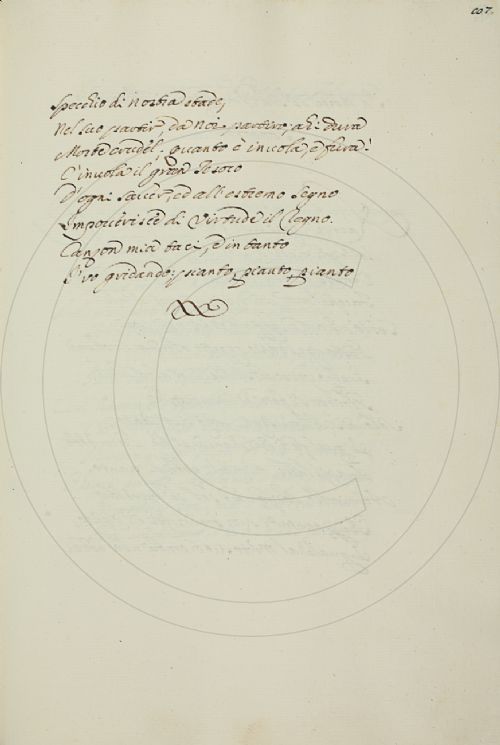 607.
Specchio di nostra etade,
Nel suo partir, da Noi partiro; ahi dura
Morte crudel, quanto è invola, e fura!
C'invola il gran Tesoro
D'ogni saver, ed all'estremo segno
Impoverisce di Virtude il Regno.
Canzon mia taci, e intanto
I' vo gridando; pianto, pianto, pianto